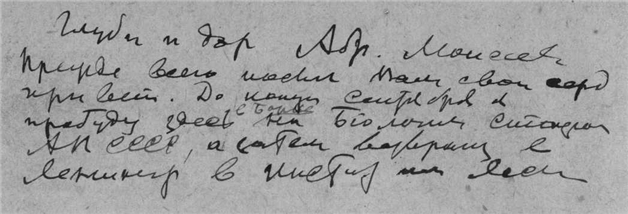 Глуб и дор Абр. Моисеев
Прежде всего посыл Вам свой серд
привет. До конца сентября я
пробуду здесь в Борке на Биологич станции
АН СССР, а затем возвращ в
Ленингр в Инстит им Лесг